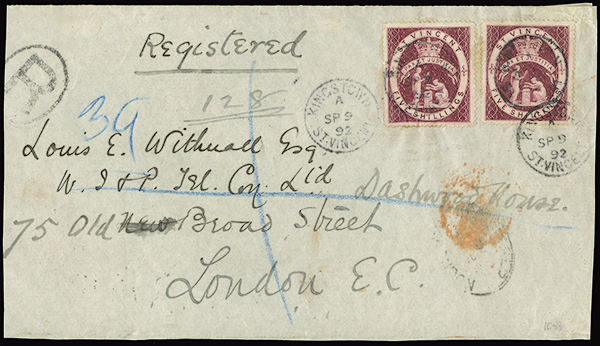 Registered
R
128
39
ST VINCENT
PAX ET JUSTITIA
FIVE SHILLINGS
ST VINCENT
PAX ET JUSTITIA
FIVE SHILLINGS
KINGSTOWN
A
SP 9
92
ST. VINCENT
KINGSTOWN
A
SP 9
92
ST. VINCENT
Louis E. Withnall Esq.
W. I & P. Tel. Coy. Ltd
Dashwood House.
75 Old New Broad Street
London E. C.